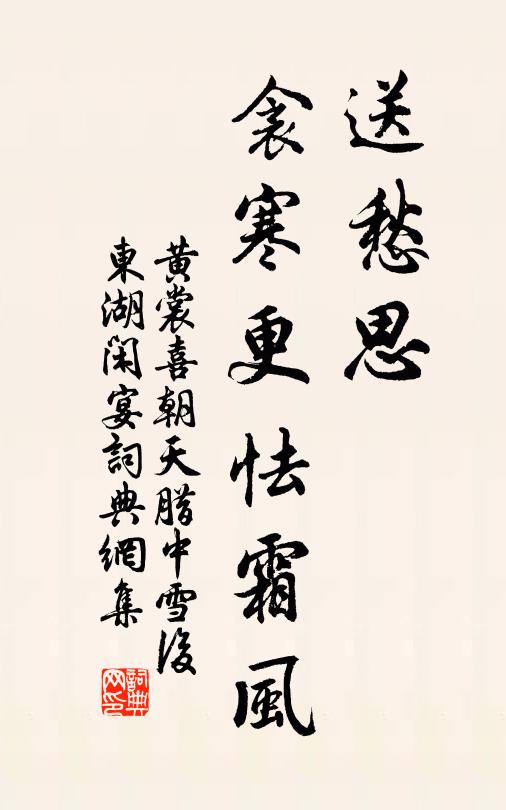 送愁思
衾寒更怯霜風
黄裳喜朝天腊中雪後
東湖閑宴詞典網集
詞典网印